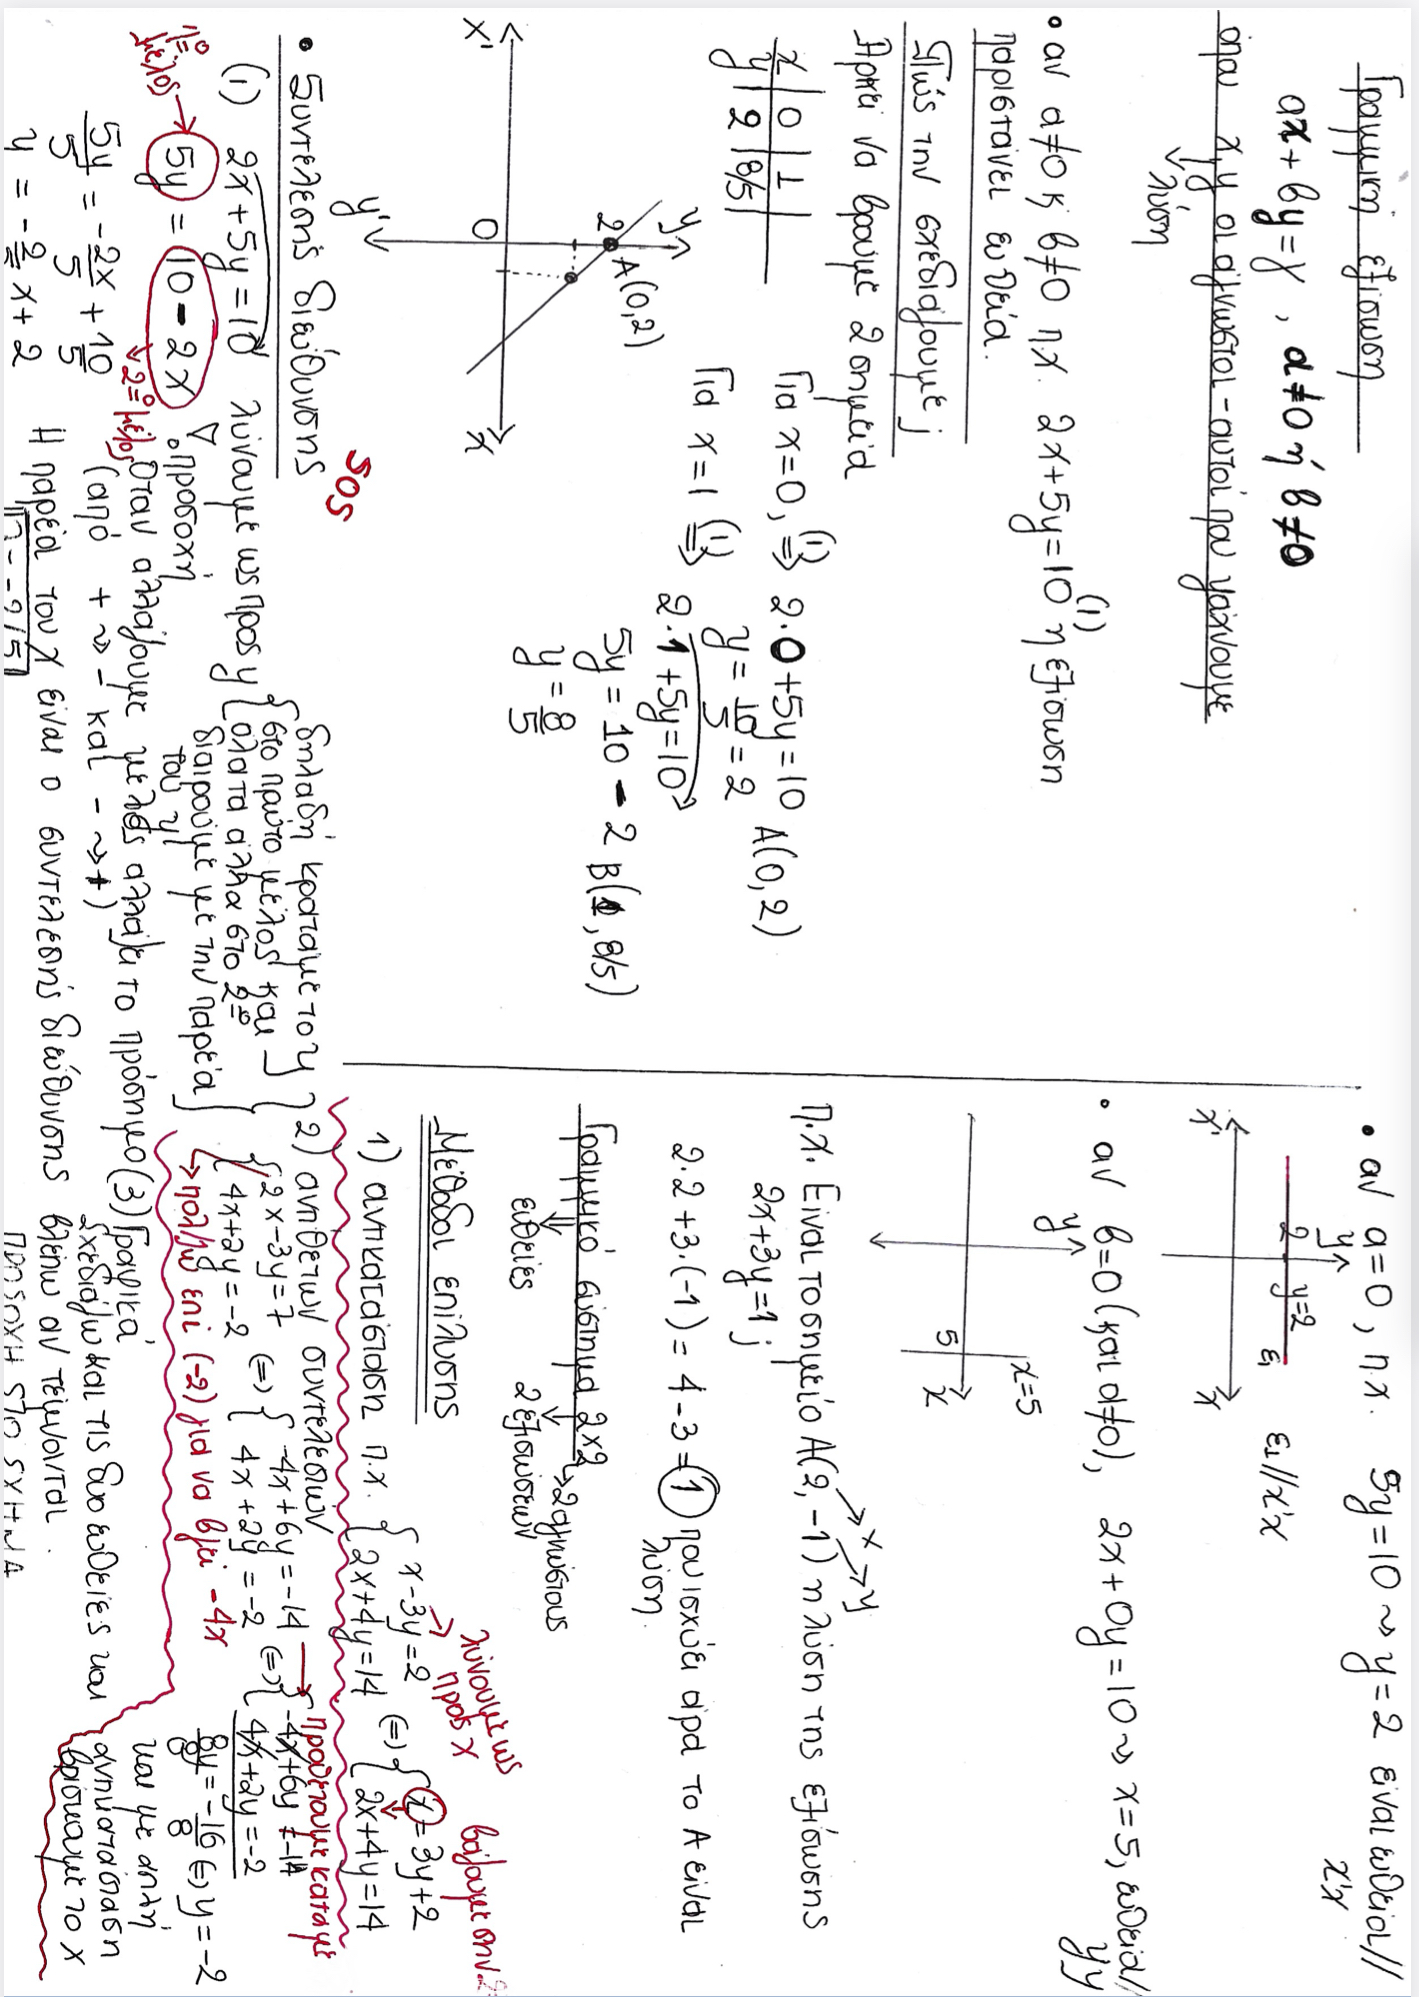 Γραμμική εξίσωση
αx + βy = γ , α≠0 ή β≠0
όπου x,y οι άγνωστοι - αυτοί που ψάχνουμε
↓ λύση
• αν α≠0 κ β≠0 π.χ. 2x+5y=10 (1) η εξίσωση
παριστάνει ευθεία.
Πώς την σχεδιάζουμε;
Αρκεί να βρούμε 2 σημεία
x | 0 | 1
y | 2 | 8/5
Για x=0, (1)⇒ 2·0+5y=10
y=10/5=2 A(0,2)
Για x=1 (1)⇒ 2·1+5y=10
5y=10-2
y=8/5 B(1,8/5)
y
2
A(0,2)
x'
0
x
y'
SOS
• Συντελεστής διεύθυνσης
(1) 2x+5y=10 λύνουμε ως προς y
{ δηλαδή κρατάμε το y
στο πρώτο μέλος και
όλα τα άλλα στο 2ο
διαιρούμε με την παρέα
του y }
1ο μέλος → 5y = 10-2x → 2ο μέλος
προσοχή
Όταν αλλάζουμε μέλος αλλάζει το πρόσημο
(από + ⇝ - και - ⇝ +)
5y/5 = -2x/5 + 10/5
y = -2/5 x + 2
Η παρέα του x είναι ο συντελεστής διεύθυνσης
• αν α=0, π.χ. 5y=10 ⇝ y=2 είναι ευθεία//
x'x
y
2
y=2
ε1
x'
x
ε1//x'x
• αν β=0 (και α≠0), 2x+0y=10 ⇝ x=5, ευθεία//
y'y
y
x=5
5
x
π.χ. Είναι το σημείο A(2,-1) η λύση της εξίσωσης
→x
→y
2x+3y=1;
2·2+3·(-1)=4-3=1 που ισχύει άρα το A είναι
λύση.
Γραμμικό σύστημα 2x2 → 2 αγνώστους
ευθείες 2 εξισώσεων
Μέθοδοι επίλυσης
λύνουμε ως
προς x
βάζουμε στην
1) αντικατάσταση π.χ. { x-3y=2
2x+4y=14 (=) { x=3y+2
2x+4y=14
2) αντίθετων συντελεστών
{ 2x-3y=7
4x+2y=-2 (=) { -4x+6y=-14
4x+2y=-2 (=) { -4x+6y=-14
4x+2y=-2
→ προσθέτουμε κατά μέλ
→ πολ/ζω επί (-2) για να βγει -4x
8y/8=-16/8 (=) y=-2
και με απλή
αντικατάσταση
βρίσκουμε το x
(3) Γραφικά
Σχεδιάζω και τις δύο ευθείες και
βλέπω αν τέμνονται.
ΠΡΟΣΟΧΗ ΣΤΟ ΣΧΗΜΑ